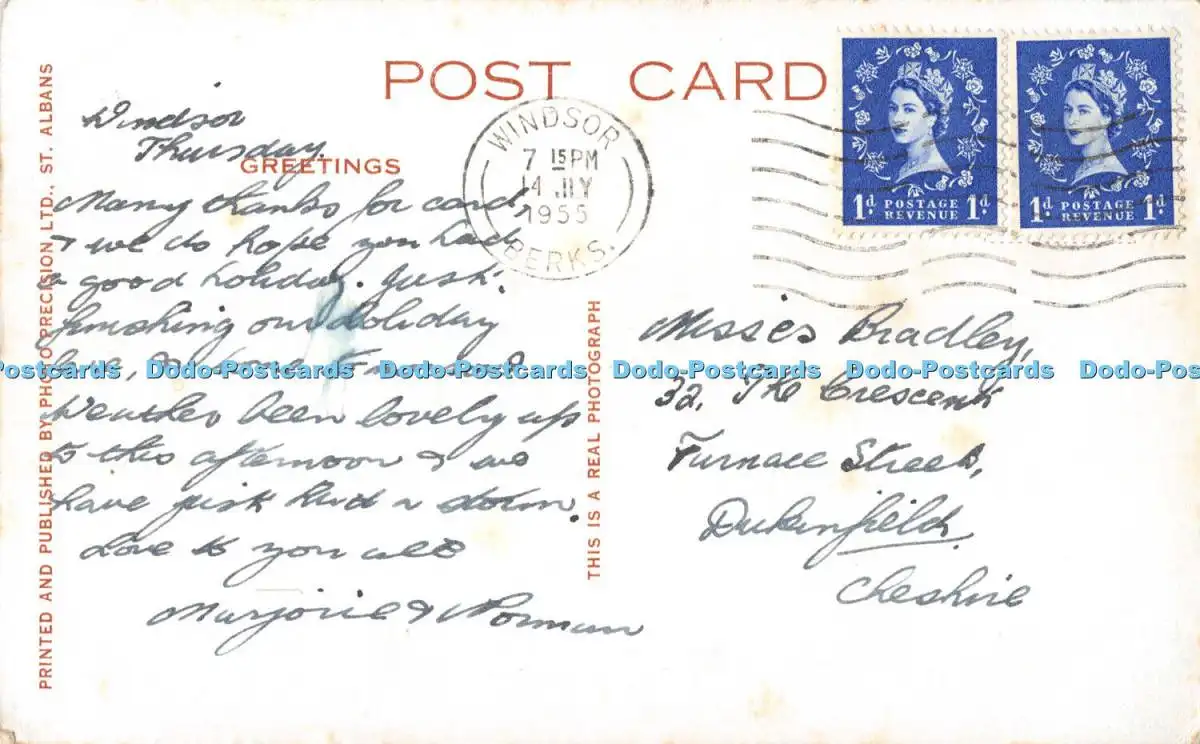 POST CARD
GREETINGS
Windsor
Thursday
Many thanks for card,
& we do hope you had
a good holiday. Just
finishing our holiday
Weather been lovely up
to this afternoon & we
have just had a storm.
Love to you all
Marjorie & Norman
WINDSOR
7 15 PM
14 JLY
1955
BERKS.
1d POSTAGE REVENUE 1d
1d POSTAGE REVENUE 1d
Misses Bradley,
32, The Crescent
Furnace Street,
Dukinfield,
Cheshire
PRINTED AND PUBLISHED BY PHOTO PRECISION LTD., ST. ALBANS
THIS IS A REAL PHOTOGRAPH
Dodo-Postcards Dodo-Postcards Dodo-Postcards Dodo-Postcards Dodo-Postcards Dodo-Postcards